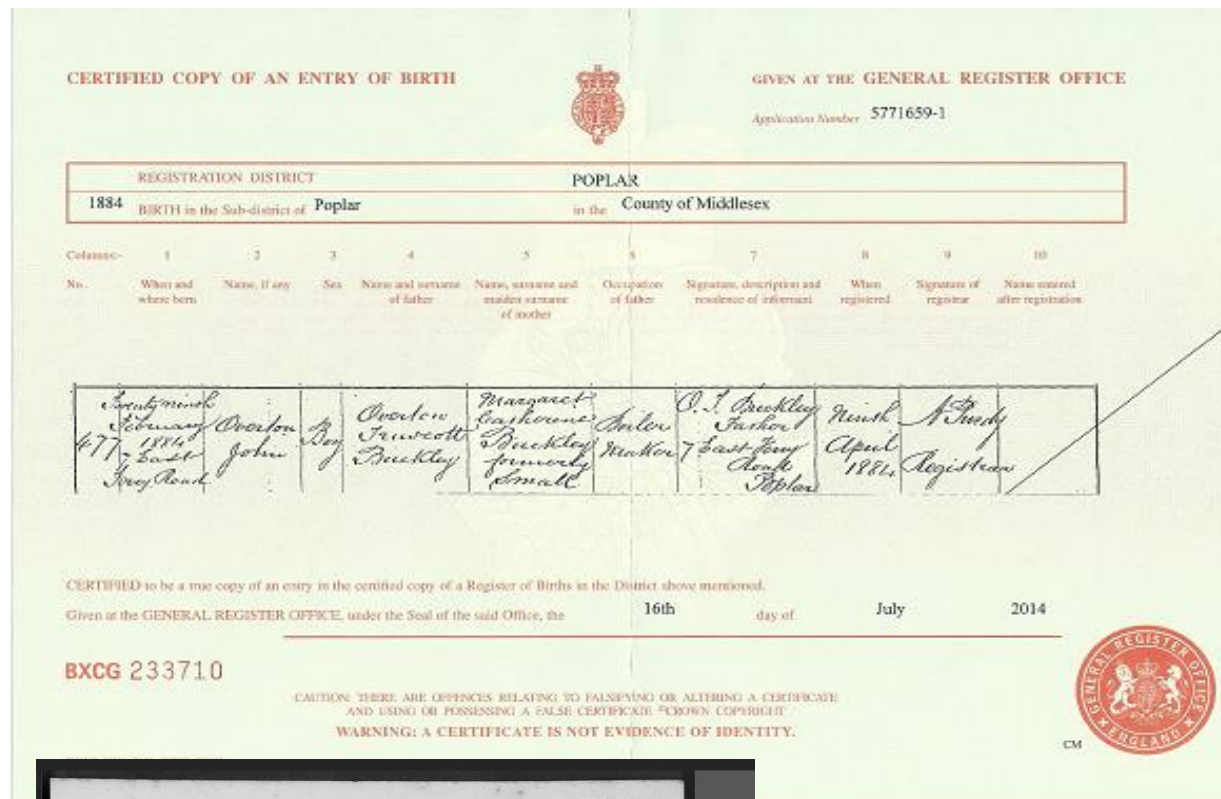 CERTIFIED COPY OF AN ENTRY OF BIRTH
GIVEN AT THE GENERAL REGISTER OFFICE
Application Number 5771659-1
REGISTRATION DISTRICT POPLAR
1884 BIRTH in the Sub-district of Poplar in the County of Middlesex
Columns:- 1 2 3 4 5 6 7 8 9 10
No. When and where born Name, if any Sex Name and surname of father Name, surname and maiden surname of mother Occupation of father Signature, description and residence of informant When registered Signature of registrar Name entered after registration
477
Twenty ninth
February
1884
7 East
Ferry Road
Overton
John
Boy
Overton
Buckley
Margaret
Catherine
Buckley
formerly
Small
Boiler
Maker
O. T. Buckley
Father
7 East Ferry
Road
Poplar
Ninth
April
1884
Registrar
CERTIFIED to be a true copy of an entry in the certified copy of a Register of Births in the District above mentioned.
Given at the GENERAL REGISTER OFFICE, under the Seal of the said Office, the 16th day of July 2014
BXCG 233710
CAUTION: THERE ARE OFFENCES RELATING TO FALSIFYING OR ALTERING A CERTIFICATE
AND USING OR POSSESSING A FALSE CERTIFICATE ©CROWN COPYRIGHT
WARNING: A CERTIFICATE IS NOT EVIDENCE OF IDENTITY.
GENERAL REGISTER OFFICE
ENGLAND
CM